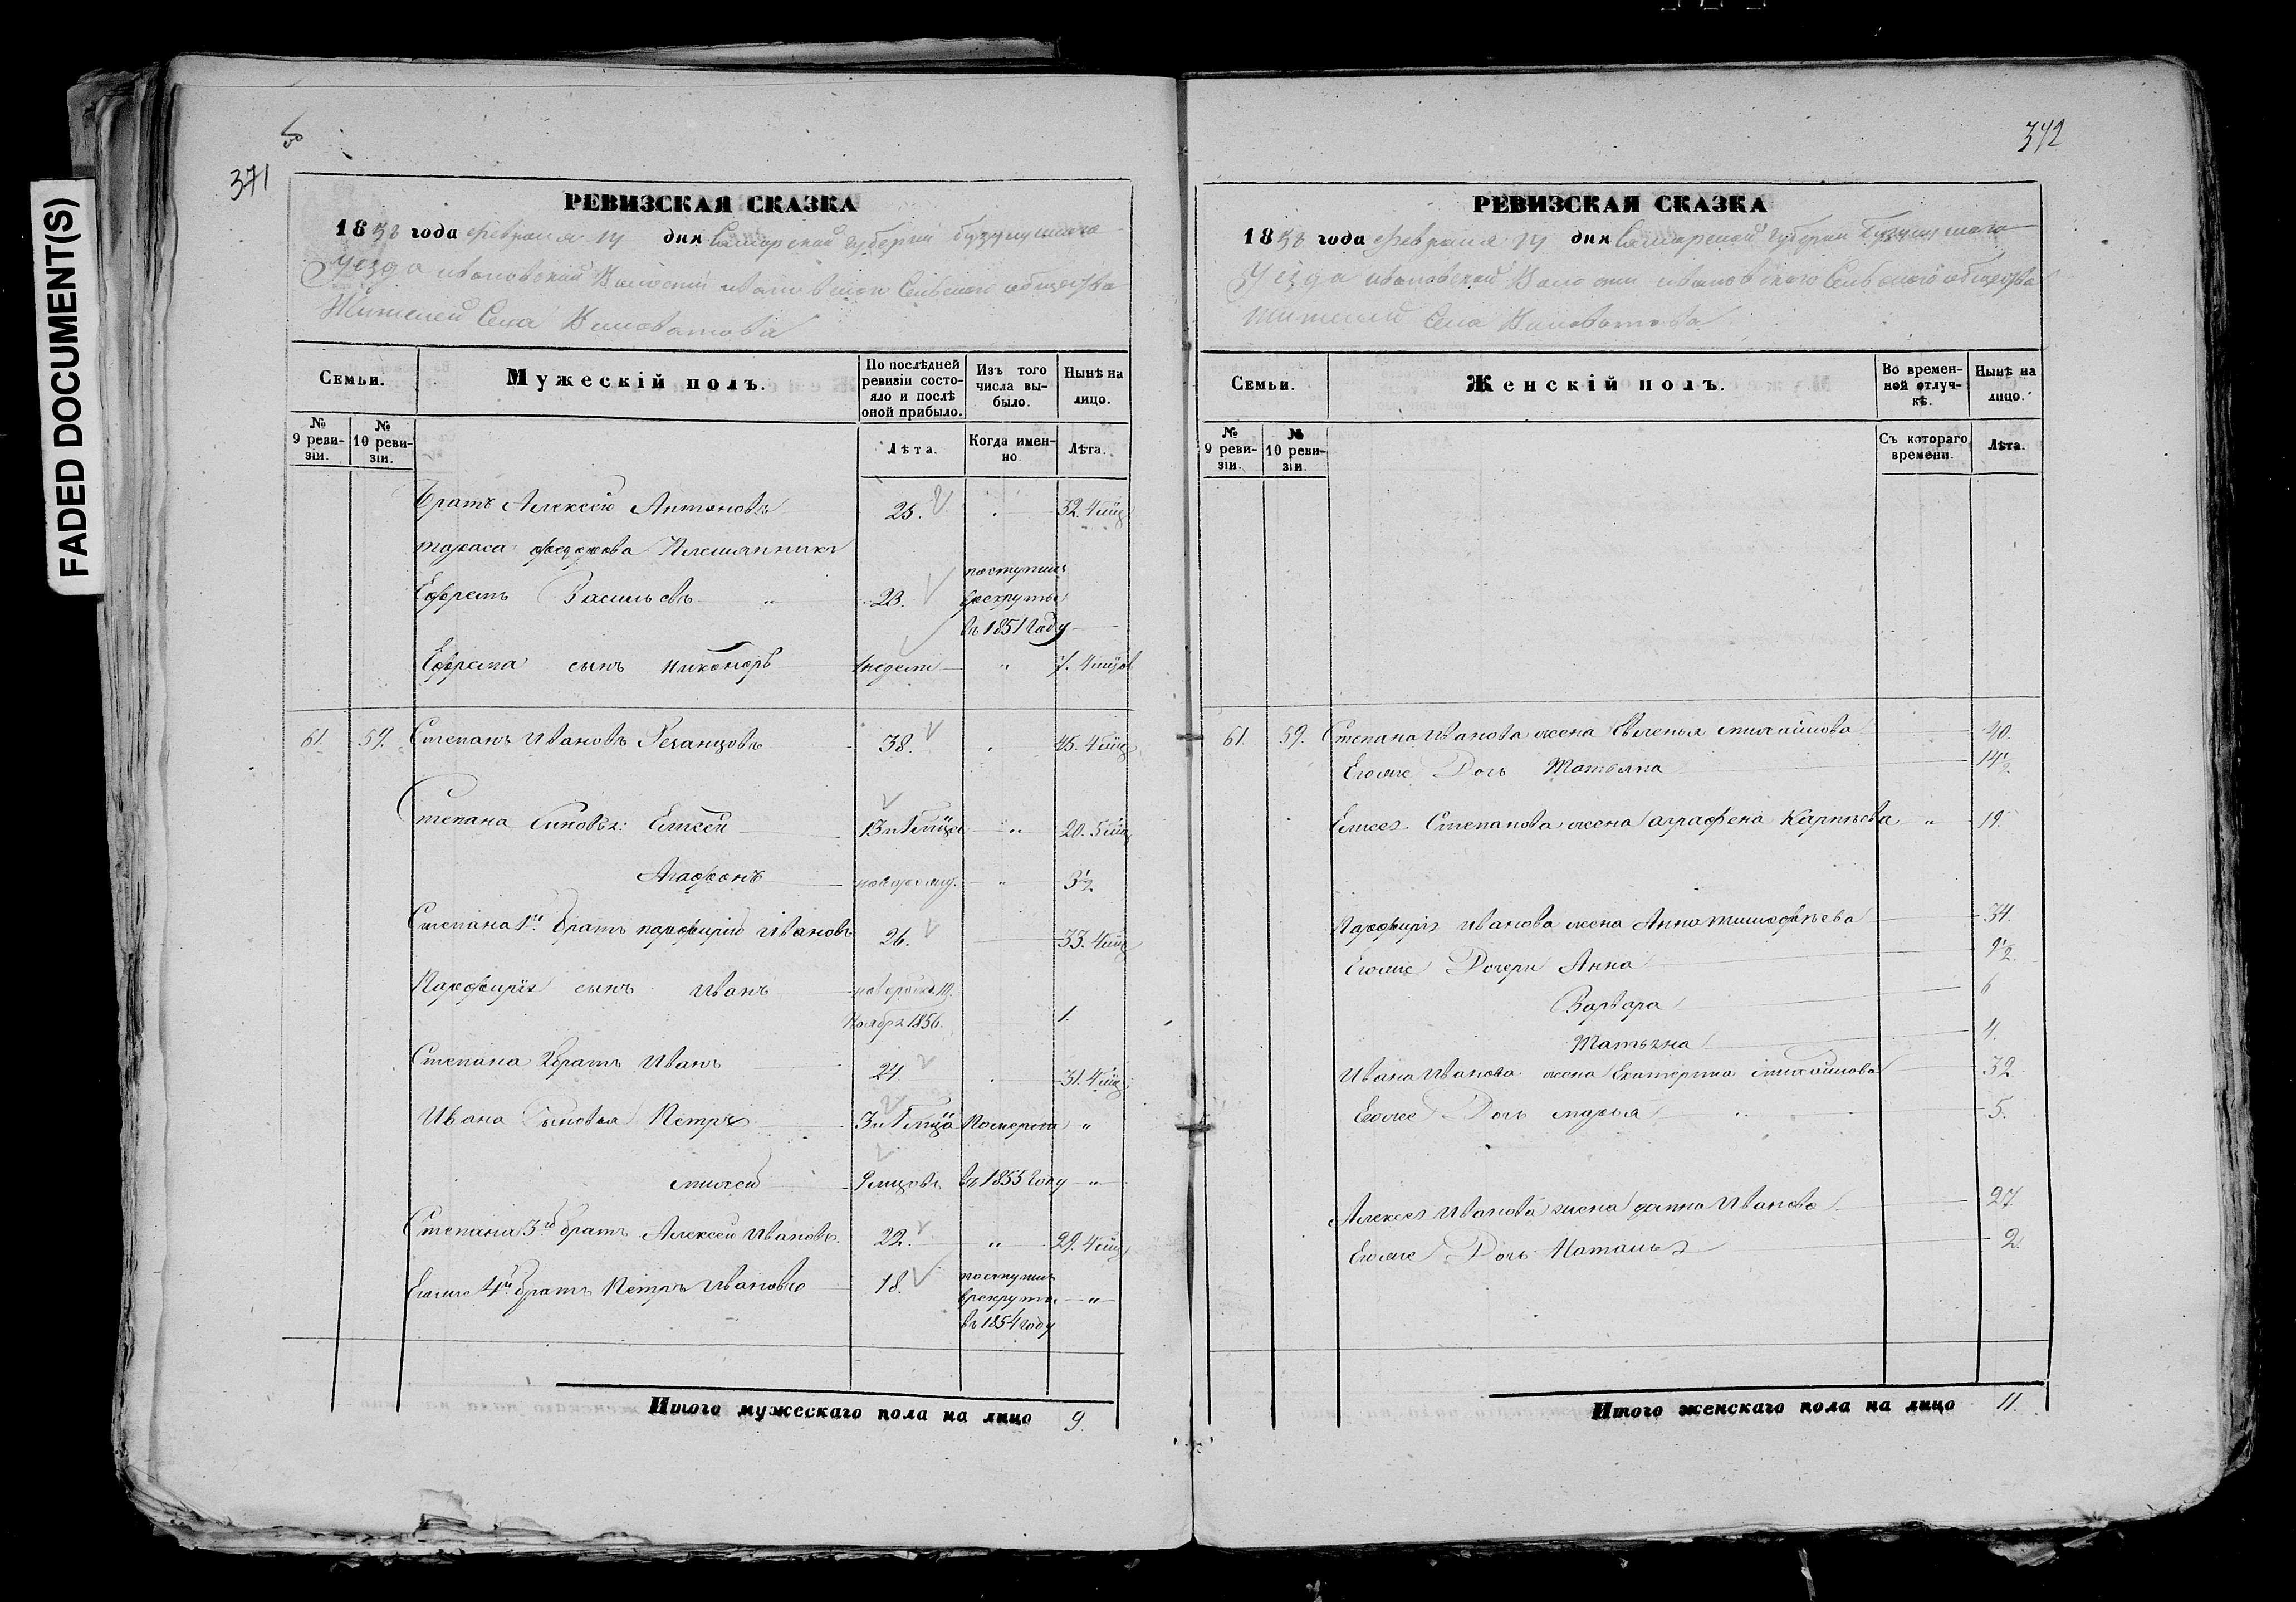 FADED DOCUMENT(S)
371
РЕВИЗСКАЯ СКАЗКА
1858 года февраля 14 дня Самарской губернии бузулушкаго
Уезда ивановской Волости ивановскаго Сельскаго общества
Жителей Села Виловатова
Семьи.
Мужескій полъ.
По послѣдней ревизіи состояло и послѣ оной прибыло.
Изъ того числа выбыло.
Нынѣ на лицо.
№ 9 ревизіи.
№ 10 ревизіи.
Лѣта.
Когда именно
Лѣта.
Братъ Алексей Антоновъ 25. 32. 4 мѣц
тараса федорова Племянникъ
Ефремъ Васильевъ " 23. поступилъ
врекруты
въ 1851 Году
Ефрема сынъ никоноръ 1 недели " 7. 4 мцов
61. 59. Степанъ Ивановъ Резанцовъ 38. 45. 4 мѣц
Степана Синовья: Елисей 13 и 1 мѣца " 20. 5 мѣц
Агафонъ новорожд. " 3 1/2
Степана 1й братъ парфирий Ивановъ 26. 33. 4 мѣц
Парфирія сынъ Иванъ новорожд.
Ноября 1856. 1.
Степана 2 братъ Иванъ 24. 31. 4 мѣц
Ивана Сыновья Петръ 3 и 1 мѣца Померли "
михей 9 мцовъ въ 1855 Году "
Степана 3й братъ Алексей Ивановъ. 22. " 29. 4 мѣц
Егоже 4й братъ Петръ Ивановъ 18. поступилъ
врекруты "
въ 1854 году
Итого мужескаго пола на лицо 9.
372
РЕВИЗСКАЯ СКАЗКА
1858 года февраля 14 дня Самарской губернии Бузулушкаго
Уезда ивановской Волости ивановскаго Сельскаго общества
Жителей Села Виловатова
Семьи.
Женскій полъ.
Во временной отлучкѣ.
Нынѣ на лицо.
№ 9 ревизіи.
№ 10 ревизіи.
Съ котораго времени.
Лѣта.
61. 59. Степана Иванова жена Евленья михайлова 40.
Егоже Дочь Татьяна 14 1/2.
Елисея Степанова жена аграфена Карпѣева " 19.
Парфирія иванова жена Анна тимофѣева 34.
Егоже Дочери Анна 9 1/2.
Варвора 6
Татьяна 4.
Ивана Иванова жена Екатерина михайлова 32.
Егоже Дочь марья " 5.
Алексея Иванова жена домна Иванова 27.
Егоже Дочь Наталья 2.
Итого женскаго пола на лицо 11.